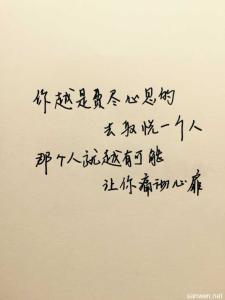 你越是费尽心思的
去取悦一个人
那个人就越有可能
让你痛彻心扉
sanwen.net